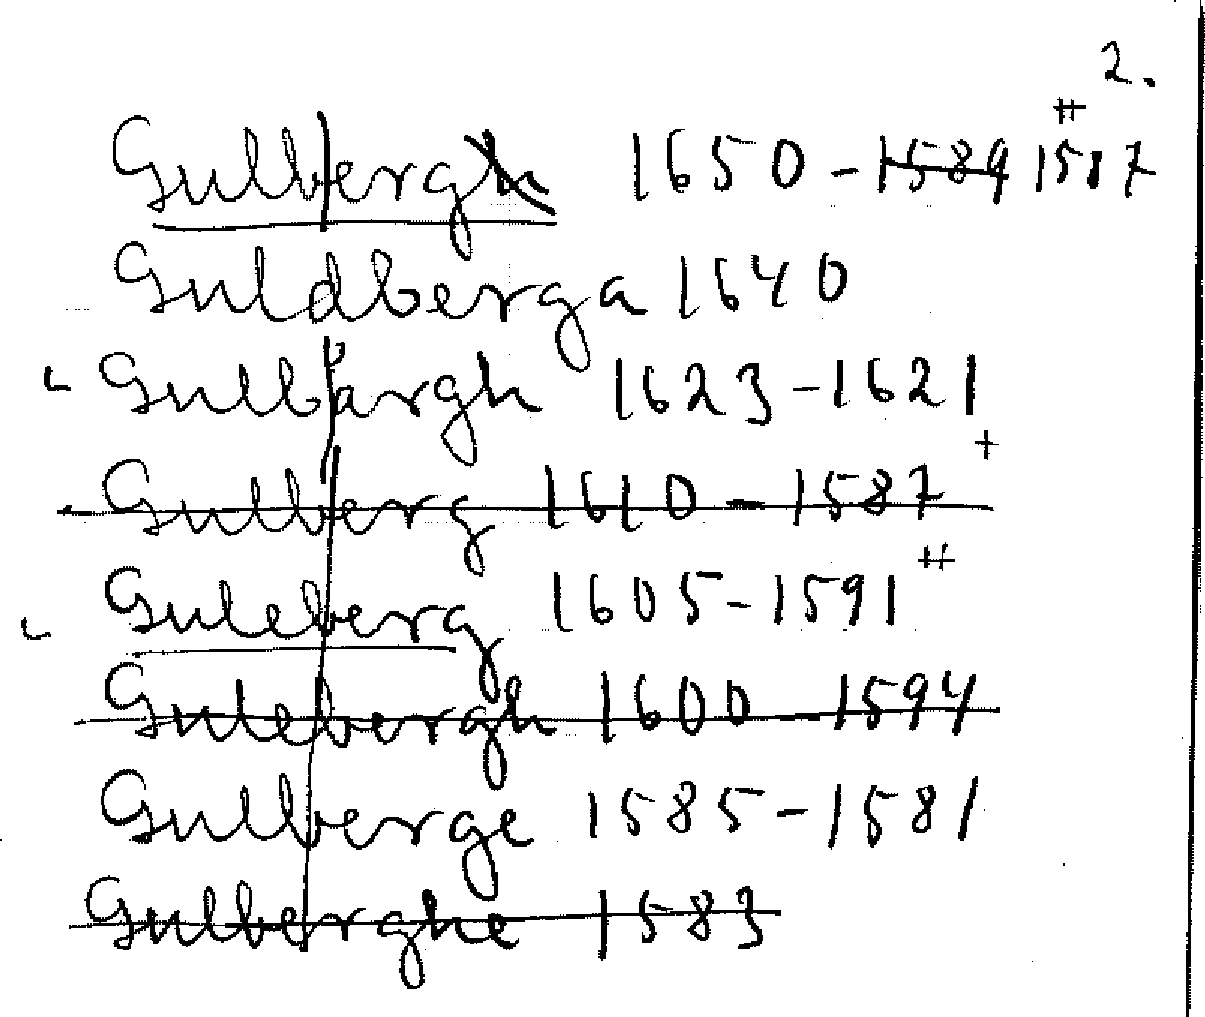 2.
Gulbergh 1650 - 1589 1587 #
Guldberga 1640
Gulbärgh 1623 - 1621
Gulberg 1610 - 1587 +
Guleberg 1605 - 1591 #
Gulebergh 1600 1594
Gulberge 1585 - 1581
Gulberghe 1583